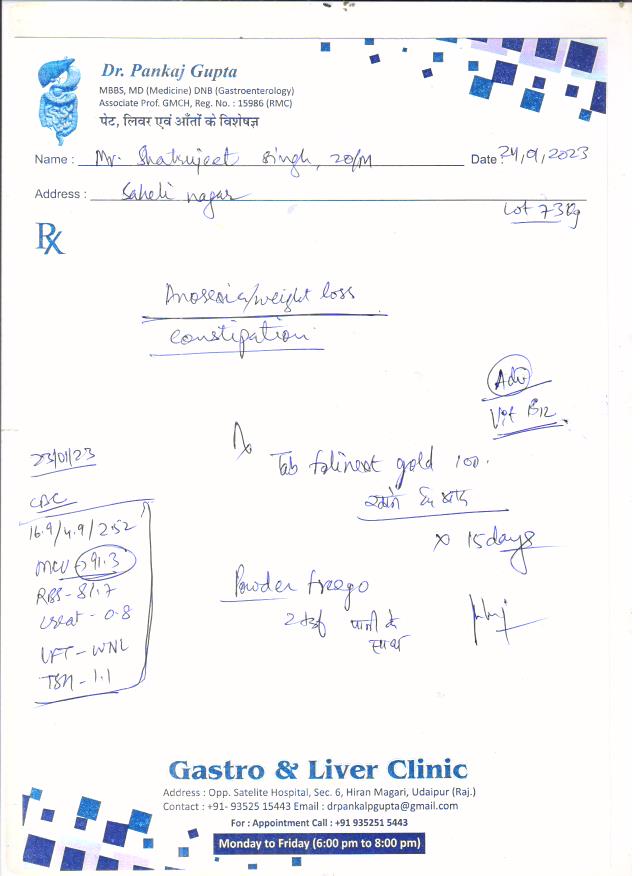 Dr. Pankaj Gupta
MBBS, MD (Medicine) DNB (Gastroenterology)
Associate Prof. GMCH, Reg. No. : 15986 (RMC)
पेट, लिवर एवं आँतों के विशेषज्ञ
Name : Mr. Shatrujeet Singh, 20/M Date 24/9/2023
Address : Saheli nagar
73 kg
Rx
Anorexia/weight loss
constipation
Adv
Vit B12
Tab folinext gold 100.
खाने के बाद
x 15 days
23/01/23
CBC
16.9/4.9/2.52
MCV → 91.3
RBS - 81.7
creat - 0.8
LFT - WNL
TSH - 1.1
Powder freego
2 पानी के
साथ
Gastro & Liver Clinic
Address : Opp. Satelite Hospital, Sec. 6, Hiran Magari, Udaipur (Raj.)
Contact : +91- 93525 15443 Email : drpankalpgupta@gmail.com
For : Appointment Call : +91 935251 5443
Monday to Friday (6:00 pm to 8:00 pm)